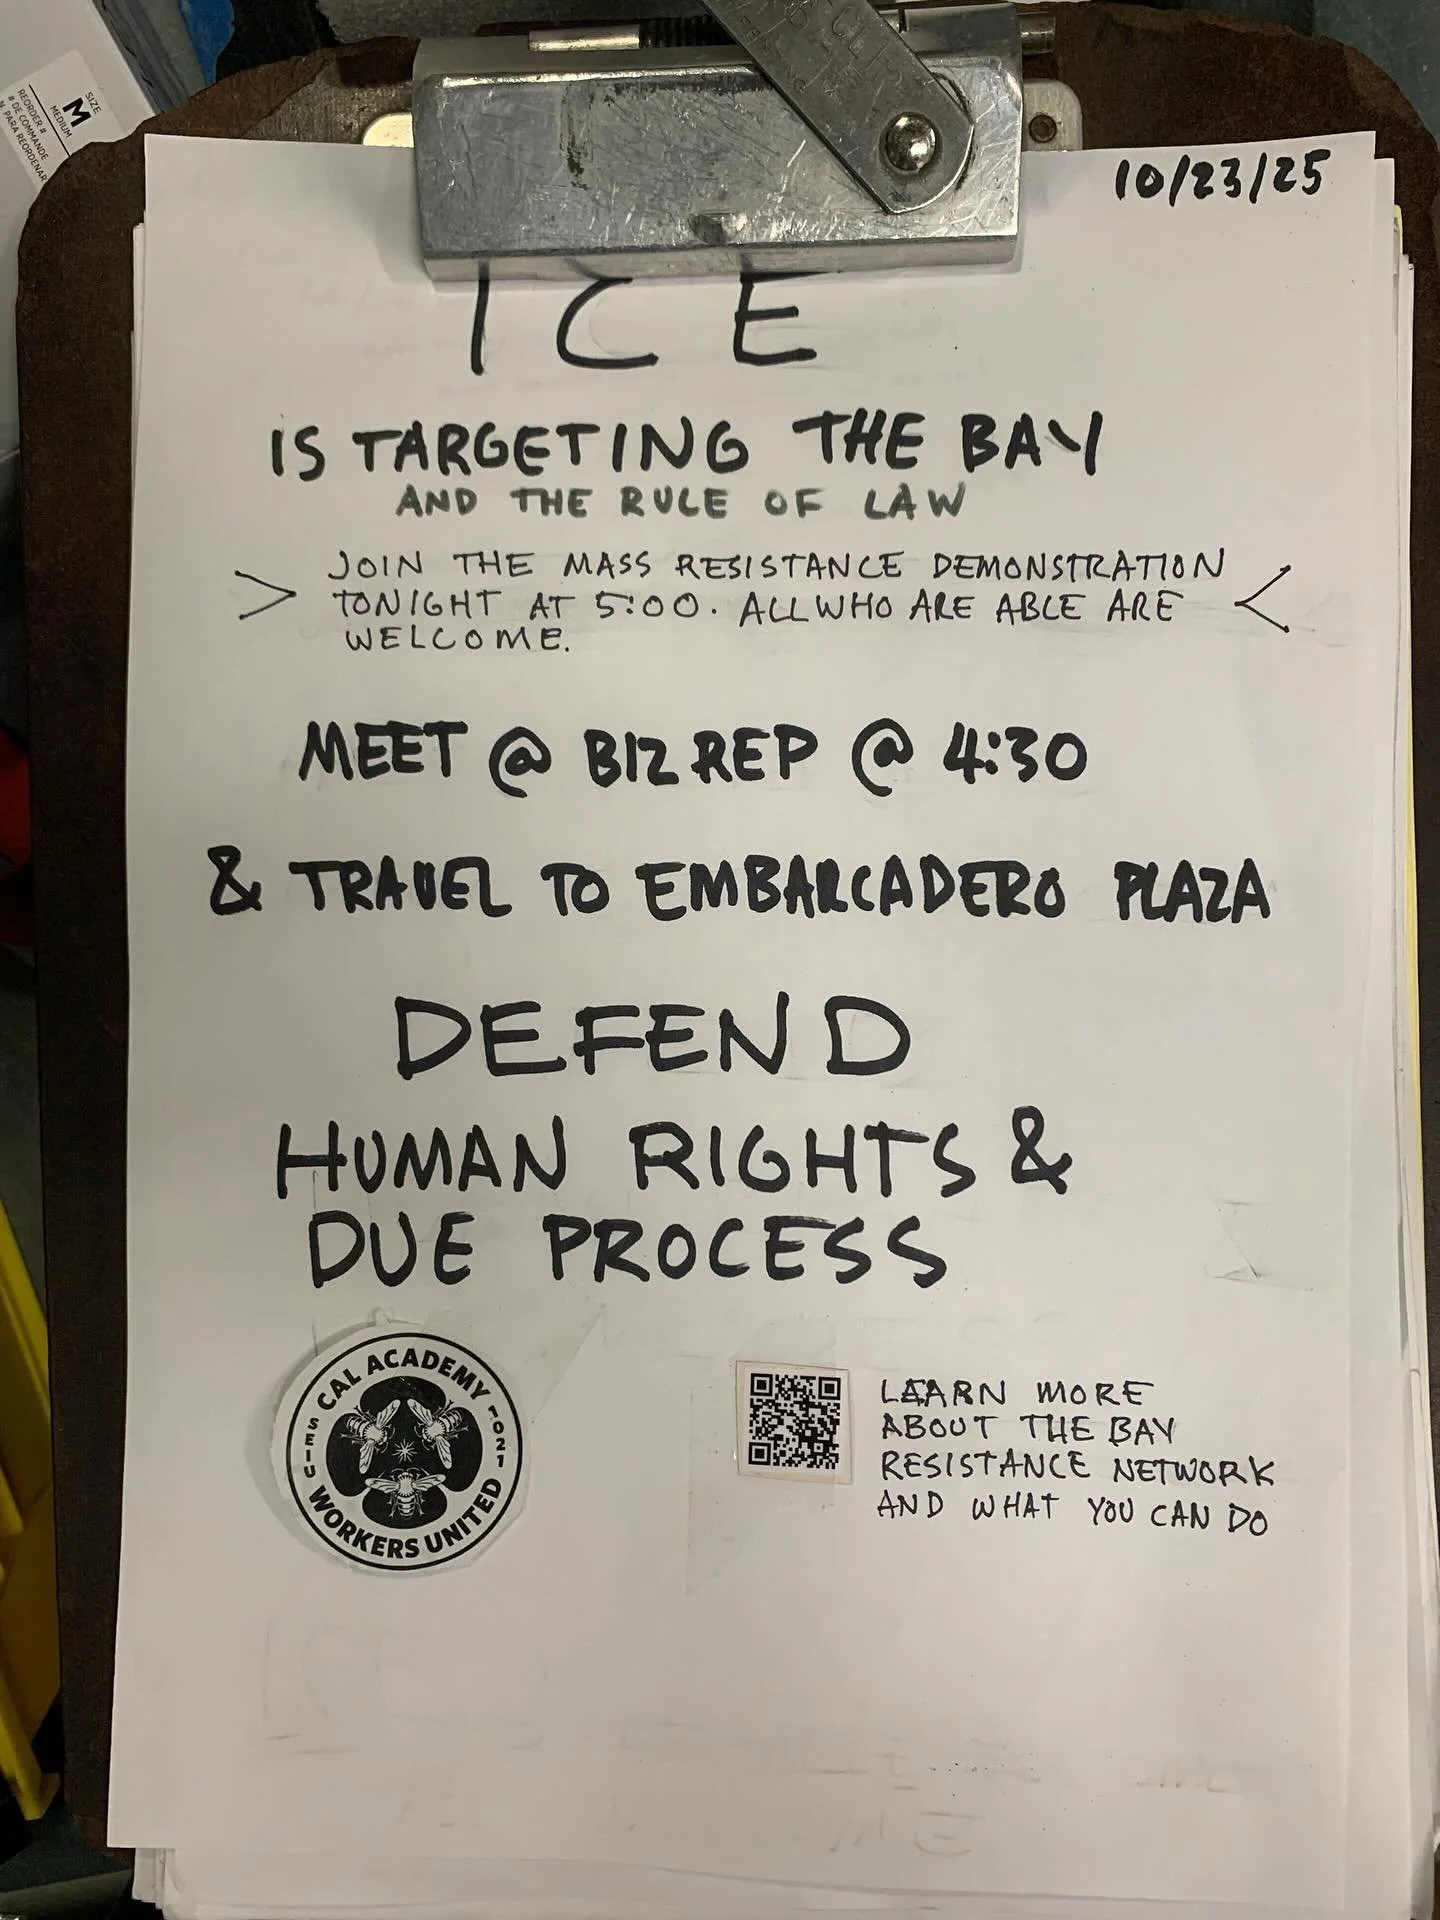 SIZE
M
MEDIUM
REORDER #
# DE COMMANDE
N. PARA REORDENAR
10/23/25
ICE
IS TARGETING THE BAY
AND THE RULE OF LAW
> JOIN THE MASS RESISTANCE DEMONSTRATION <
TONIGHT AT 5:00. ALL WHO ARE ABLE ARE
WELCOME.
MEET @ BIZ REP @ 4:30
& TRAVEL TO EMBARCADERO PLAZA
DEFEND
HUMAN RIGHTS &
DUE PROCESS
CAL ACADEMY
SEIU
1021
WORKERS UNITED
LEARN MORE
ABOUT THE BAY
RESISTANCE NETWORK
AND WHAT YOU CAN DO